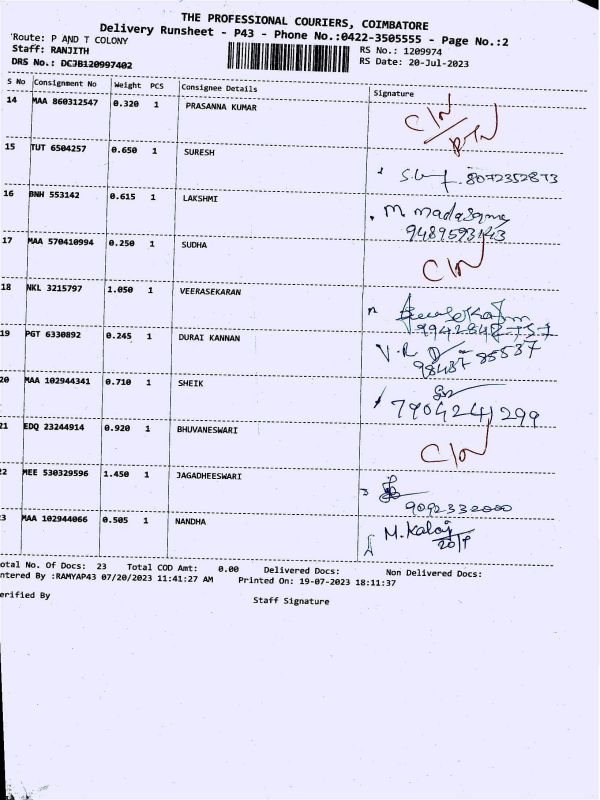 THE PROFESSIONAL COURIERS, COIMBATORE
Delivery Runsheet - P43 - Phone No.:0422-3505555 - Page No.:2
Route: P AND T COLONY
RS No.: 1209974
Staff: RANJITH
RS Date: 20-Jul-2023
DRS No.: DCJB120997402
S No Consignment No Weight PCS Consignee Details Signature
14 MAA 860312547 0.320 1 PRASANNA KUMAR C/N
RTN
15 TUT 6504257 0.650 1 SURESH 8072352873
16 BNH 553142 0.615 1 LAKSHMI M.
9489593143
17 MAA 570410994 0.250 1 SUDHA C/N
18 NKL 3215797 1.050 1 VEERASEKARAN
9942848757
19 PGT 6330892 0.245 1 DURAI KANNAN V.R
98437 85537
20 MAA 102944341 0.710 1 SHEIK
7904241299
21 EDQ 23244914 0.920 1 BHUVANESWARI C/N
22 MEE 530329596 1.450 1 JAGADHEESWARI
9092332000
23 MAA 102944066 0.505 1 NANDHA M.Kalai
otal No. Of Docs: 23 Total COD Amt: 0.00 Delivered Docs: Non Delivered Docs:
ntered By :RAMYAP43 07/20/2023 11:41:27 AM Printed On: 19-07-2023 18:11:37
erified By Staff Signature